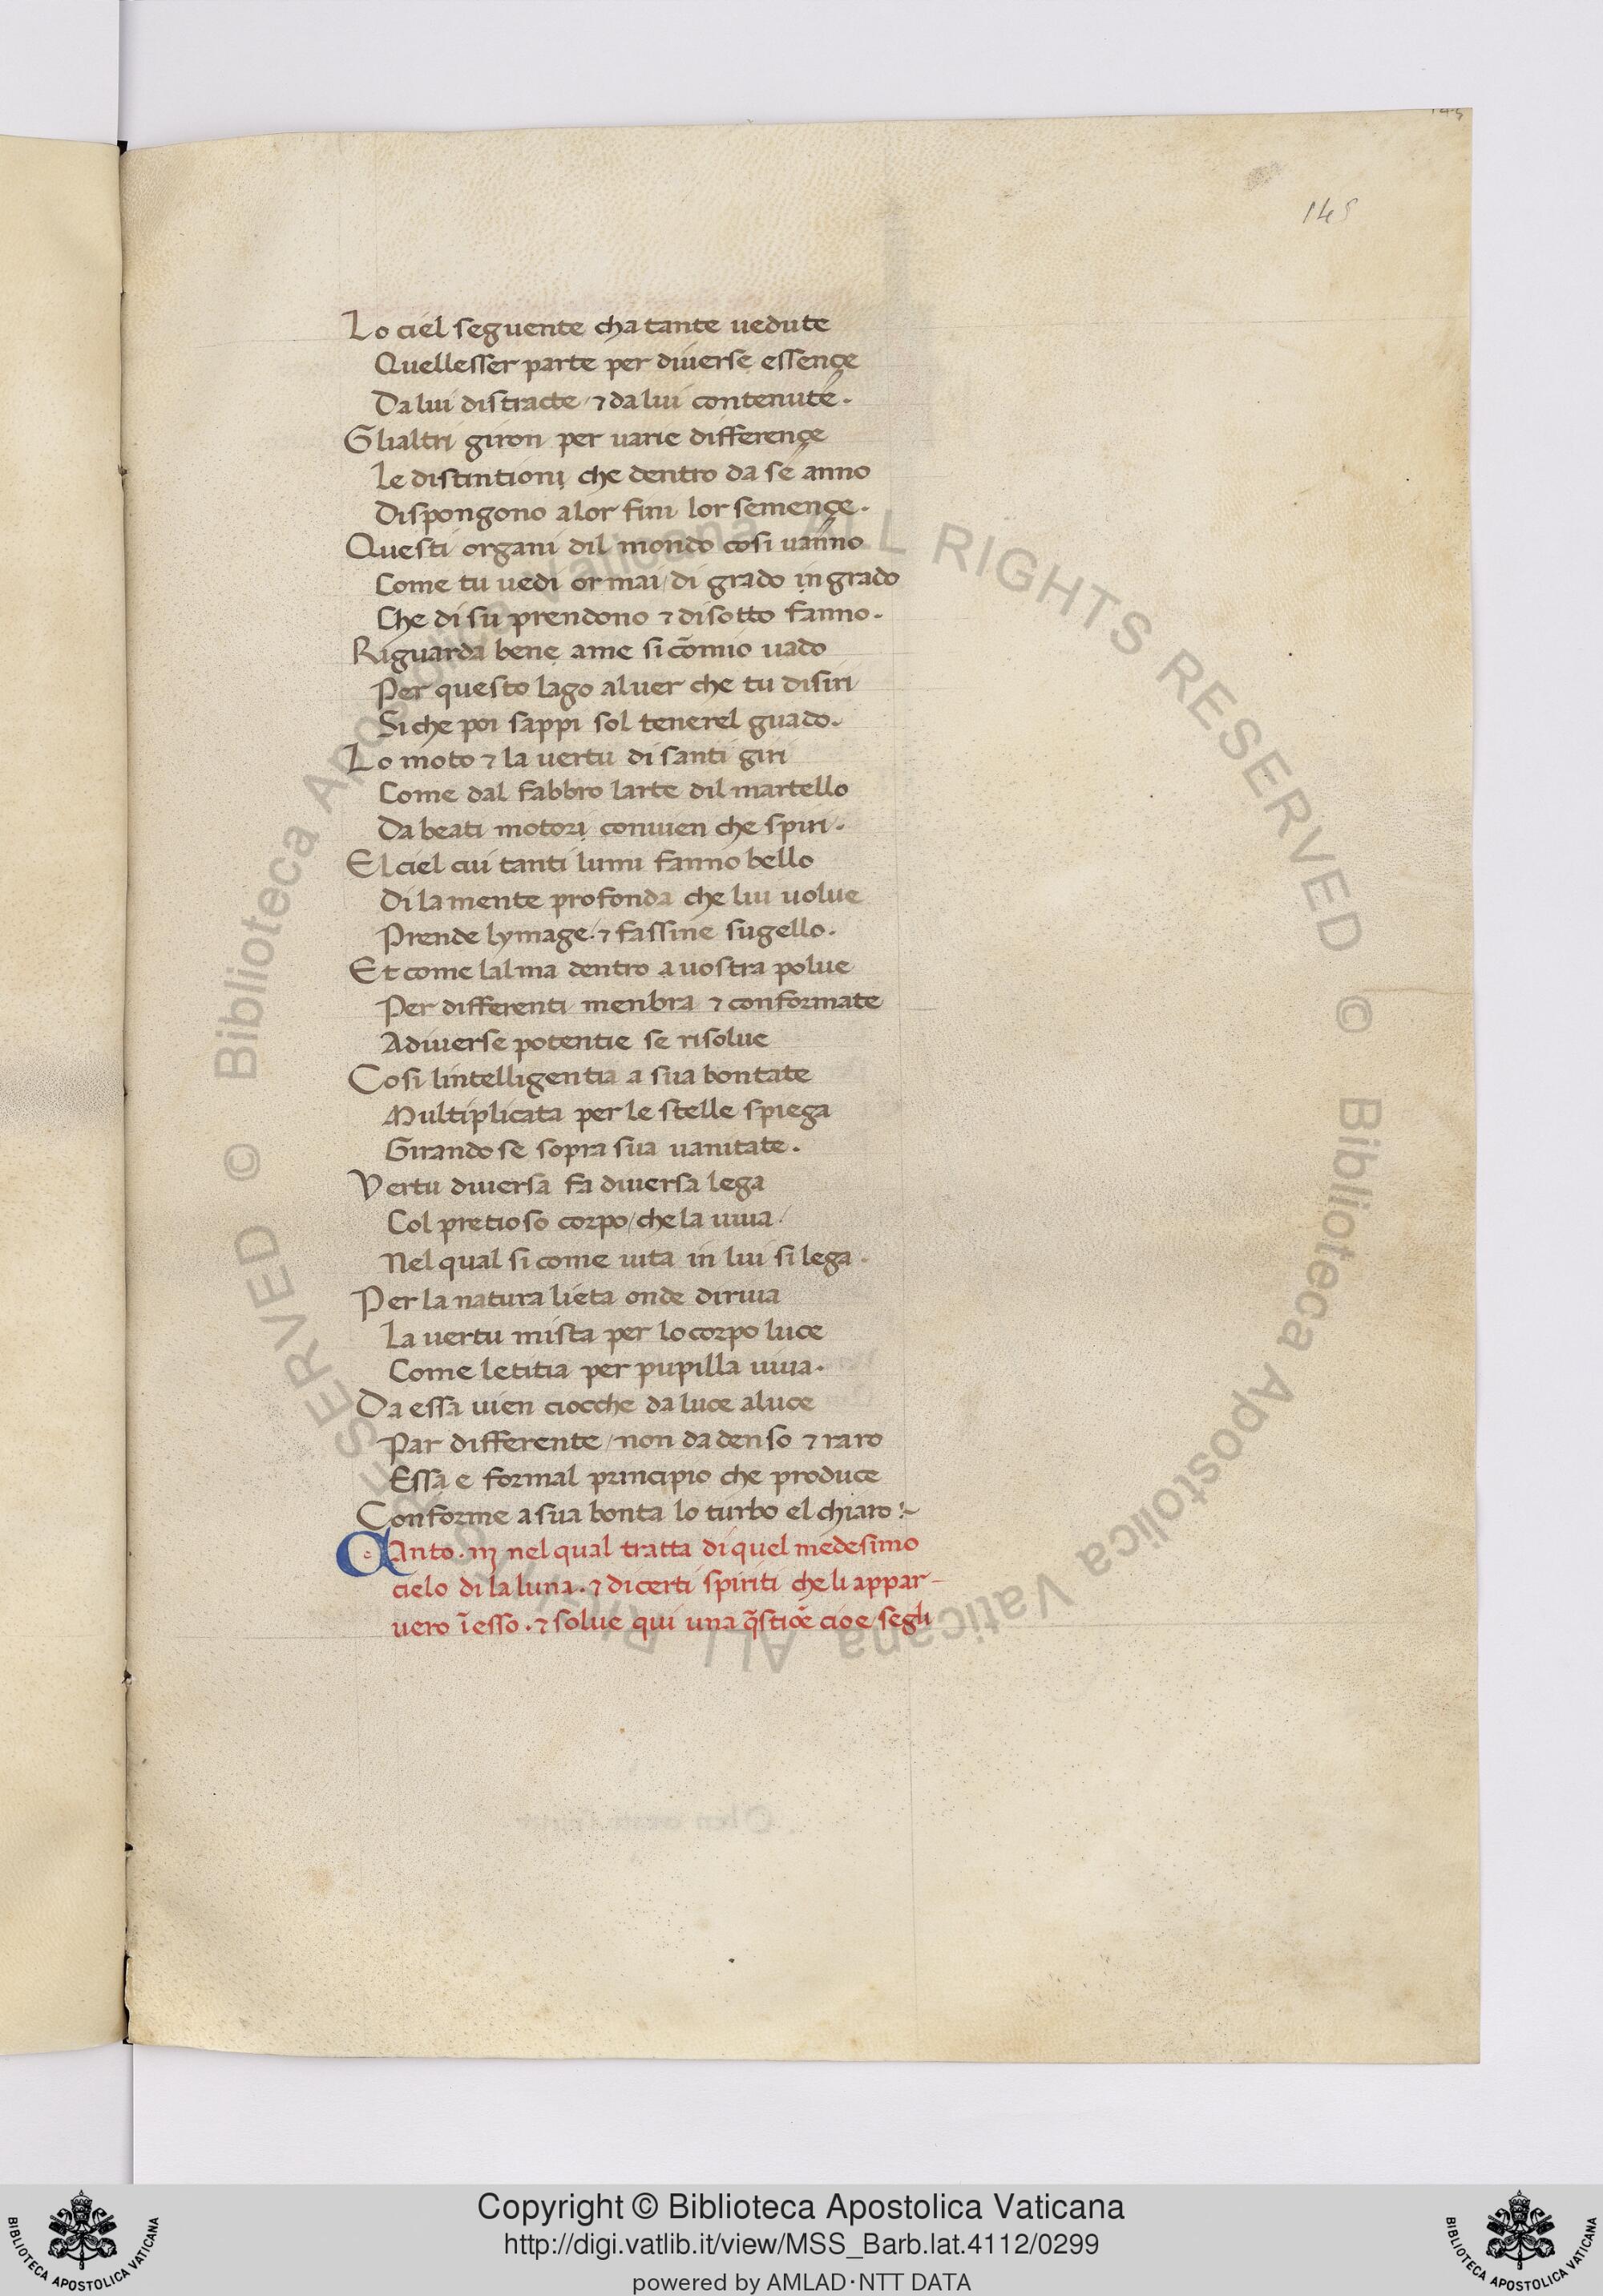 145
145
Lo ciel seguente cha tante uedute
Quellesser parte per diuerse essençe
Da lui distracte / ⁊ da lui contenute.
Glialtri giron per uarie differençe
Le distintioni che dentro da se anno
Dispongono alor fini lor semençe.
Questi organi dil mondo cosi uanno
Come tu uedi ormai / di grado in grado
Che di su prendono ⁊ disotto fanno.
Riguarda bene ame si cōmio uado
Per questo lago aluer che tu disiri
Si che poi sappi sol tenerel guado.
Lo moto ⁊ la uertu di santi giri
Come dal fabbro larte dil martello
Da beati motori conuien che spiri.
El ciel cui tanti lumi fanno bello
Di la mente profonda che lui uolue
Prende lymage. ⁊ fassine sugello.
Et come lalma dentro a uostra polue
Per differenti menbra ⁊ conformate
Adiuerse potentie se risolue
Cosi lintelligentia a sua bontate
Multiplicata per le stelle spiega
Girando se sopra sua unitate.
Vertu diuersa fa diuersa lega
Col pretioso corpo / che la uiua /
Nel qual si come uita in lui si lega.
Per la natura lieta onde diriua
La uertu mista per lo corpo luce
Come letitia per pupilla uiua.
Da essa uien ciocche da luce aluce
Par differente / non da denso ⁊ raro
Essa e formal principio che produce
Conforme a sua bonta lo turbo el chiaro :~
Canto. iij nel qual tratta di quel medesimo
cielo di la luna. ⁊ di certi spiriti che li appar-
uero ī esso. ⁊ solue qui una q̄stiōe cioe / segli
© Biblioteca Apostolica Vaticana ALL RIGHTS RESERVED © Biblioteca Apostolica Vaticana ALL RIGHTS RESERVED
BIBLIOTECA APOSTOLICA VATICANA
Copyright © Biblioteca Apostolica Vaticana
http://digi.vatlib.it/view/MSS_Barb.lat.4112/0299
powered by AMLAD·NTT DATA
BIBLIOTECA APOSTOLICA VATICANA